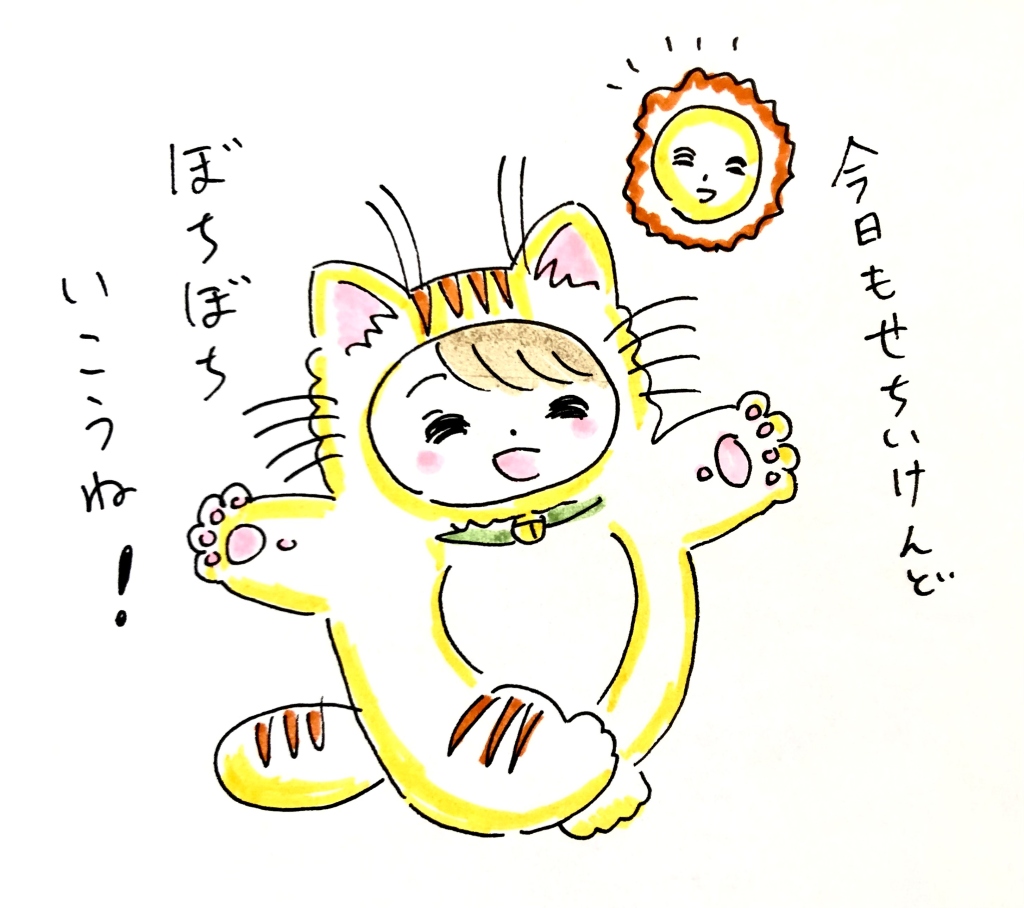 今日もせちいけんど
ぼちぼち
いこうね!